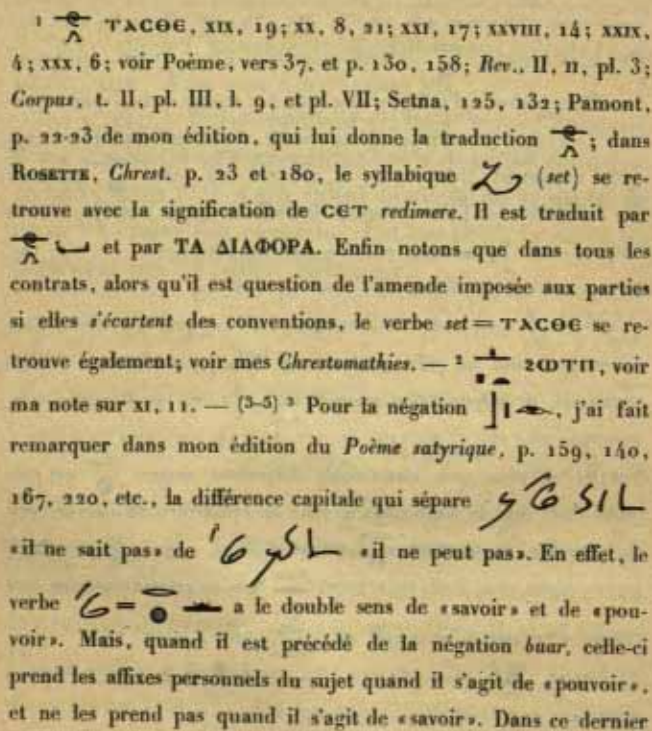 ¹ ⲧⲁⲥⲑⲉ, XIX, 19; XX, 8, 21; XXI, 17; XXVIII, 14; XXIX,
4; XXX, 6; voir Poème, vers 37, et p. 130, 158; Rev., II, II, pl. 3;
Corpus, t. II, pl. III, l. 9, et pl. VII; Setna, 125, 132; Pamont,
p. 22-23 de mon édition, qui lui donne la traduction ; dans
ROSETTE, Chrest. p. 23 et 180, le syllabique (set) se re-
trouve avec la signification de ⲥⲉⲧ redimere. Il est traduit par
et par ΤΑ ΔΙΑΦΟΡΑ. Enfin notons que dans tous les
contrats, alors qu'il est question de l'amende imposée aux parties
si elles s'écartent des conventions, le verbe set = ⲧⲁⲥⲑⲉ se re-
trouve également; voir mes Chrestomathies. — ² ϩⲱⲧⲡ, voir
ma note sur XI, 11. — (3-5) ³ Pour la négation , j'ai fait
remarquer dans mon édition du Poème satyrique, p. 159, 140,
167, 220, etc., la différence capitale qui sépare
«il ne sait pas» de «il ne peut pas». En effet, le
verbe = a le double sens de «savoir» et de «pou-
voir». Mais, quand il est précédé de la négation buar, celle-ci
prend les affixes personnels du sujet quand il s'agit de «pouvoir»,
et ne les prend pas quand il s'agit de «savoir». Dans ce dernier